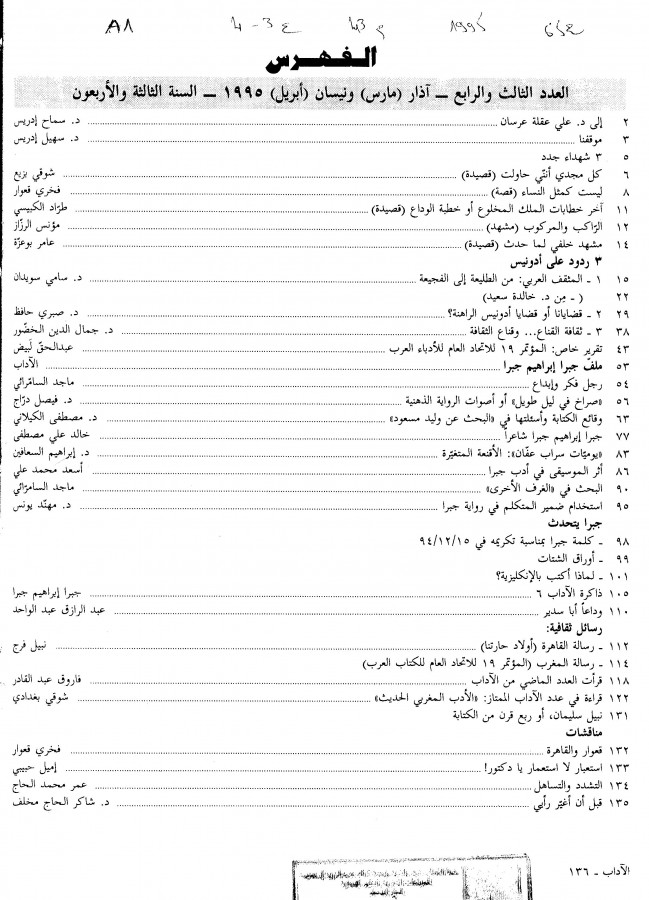 A1 4-3 ع م 43 1995
الفهرس
العدد الثالث والرابع ــ آذار (مارس) ونيسان (أبريل) ١٩٩٥ ــ السنة الثالثة والأربعون
٢ إلى د. علي عقلة عرسان ........ د. سماح إدريس
٣ موقفنا ........ د. سهيل إدريس
٥ ٣ شهداء جدد
٦ كل مجدي أنني حاولت (قصيدة) ........ شوقي بزيع
٨ ليست كمثل النساء (قصة) ........ فخري قعوار
١١ آخر خطابات الملك المخلوع أو خطبة الوداع (قصيدة) ........ طرّاد الكبيسي
١٢ الرّاكب والمركوب (مشهد) ........ مؤنس الرزّاز
١٤ مشهد خلفي لما حدث (قصيدة) ........ عامر بوعزّة
٣ ردود على أدونيس
١٥ ١ ـ المثقف العربي: من الطليعة إلى الفجيعة ........ د. سامي سويدان
٢٢ ( ـ مِن د. خالدة سعيد)
٢٩ ٢ ـ قضايانا أو قضايا أدونيس الراهنة؟ ........ د. صبري حافظ
٣٨ ٣ ـ ثقافة القناع... وقناع الثقافة ........ د. جمال الدين الخضّور
٤٣ تقرير خاص: المؤتمر ١٩ للاتحاد العام للأدباء العرب ........ عبدالحقّ لَبيض
٥٣ ملفّ جبرا إبراهيم جبرا ........ الآداب
٥٤ رجل فكر وإبداع ........ ماجد السامّرائي
٥٦ «صراخ في ليل طويل» أو أصوات الرواية الذهنية ........ د. فيصل درّاج
٦٣ وقائع الكتابة وأسئلتها في «البحث عن وليد مسعود» ........ د. مصطفى الكيلاني
٧٧ جبرا إبراهيم جبرا شاعراً ........ خالد علي مصطفى
٨٣ «يوميّات سراب عفّان»: الأقنعة المتغيّرة ........ د. إبراهيم السعافين
٨٦ أثر الموسيقى في أدب جبرا ........ أسعد محمد علي
٩٠ البحث في «الغرف الأخرى» ........ ماجد السامرّائي
٩٥ استخدام ضمير المتكلم في رواية جبرا ........ د. مهنّد يونس
جبرا يتحدث
٩٨ ـ كلمة جبرا بمناسبة تكريمه في ٩٤/١٢/١٥
٩٩ ـ أوراق الشتات
١٠١ ـ لماذا أكتب بالإنكليزية؟
١٠٥ ذاكرة الآداب ٦ ........ جبرا إبراهيم جبرا
١١٠ وداعاً أبا سدير ........ عبد الرازق عبد الواحد
رسائل ثقافية:
١١٢ ـ رسالة القاهرة (أولاد حارتنا) ........ نبيل فرج
١١٤ ـ رسالة المغرب (المؤتمر ١٩ للاتحاد العام للكتاب العرب)
١١٨ قرأت العدد الماضي من الآداب ........ فاروق عبد القادر
١٢٢ قراءة في عدد الآداب الممتاز: «الأدب المغربي الحديث» ........ شوقي بغدادي
١٣١ نبيل سليمان، أو ربع قرن من الكتابة
مناقشات
١٣٢ قعوار والقاهرة ........ فخري قعوار
١٣٣ استعبار لا استعمار يا دكتور! ........ إميل حبيبي
١٣٤ التشدد والتساهل ........ عمر محمد الحاج
١٣٥ قبل أن أغيّر رأيي ........ د. شاكر الحاج مخلف
الآداب ـ ١٣٦